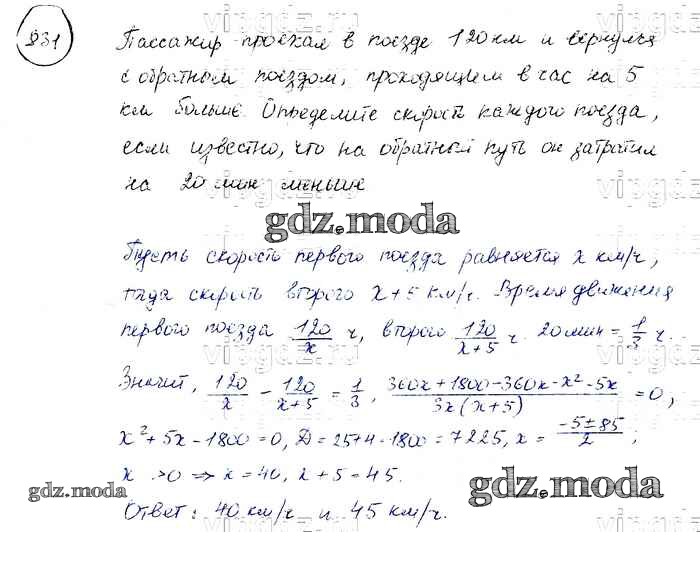 831
Пассажир проехал в поезде 120 км и вернулся
с обратным поездом, проходящем в час на 5
км больше. Определите скорость каждого поезда,
если известно, что на обратный путь он затратил
на 20 мин меньше
gdz.moda
Пусть скорость первого поезда равняется x км/ч,
тогда скорость второго x+5 км/ч. Время движения
первого поезда 120/x ч, второго 120/(x+5) ч. 20 мин = 1/3 ч.
Значит, 120/x - 120/(x+5) = 1/3, (360x+1800-360x-x²-5x)/(3x(x+5)) = 0,
x²+5x-1800=0, D=25+4·1800=7225, x = (-5±85)/2;
x >0 => x=40, x+5=45.
gdz.moda
gdz.moda
Ответ: 40 км/ч и 45 км/ч.